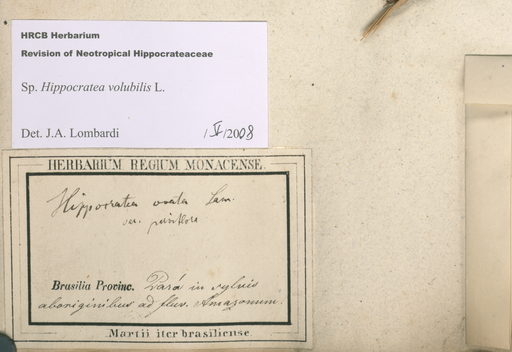 HRCB Herbarium
Revision of Neotropical Hippocrateaceae
Sp. Hippocratea volubilis L.
Det. J.A. Lombardi /V/2008
HERBARIUM REGIUM MONACENSE.
Hippocratea ovata Lam.
var. parviflora
Brasilia Provinc. Pará in sylvis
aboriginibus ad fluv. Amazonum.
Martii iter brasiliense.